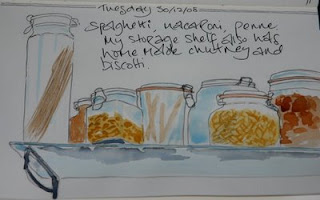 Tuesday 30/12/08
Spaghetti, macaroni, penne
My storage shelf also has
home made chutney and
biscotti.